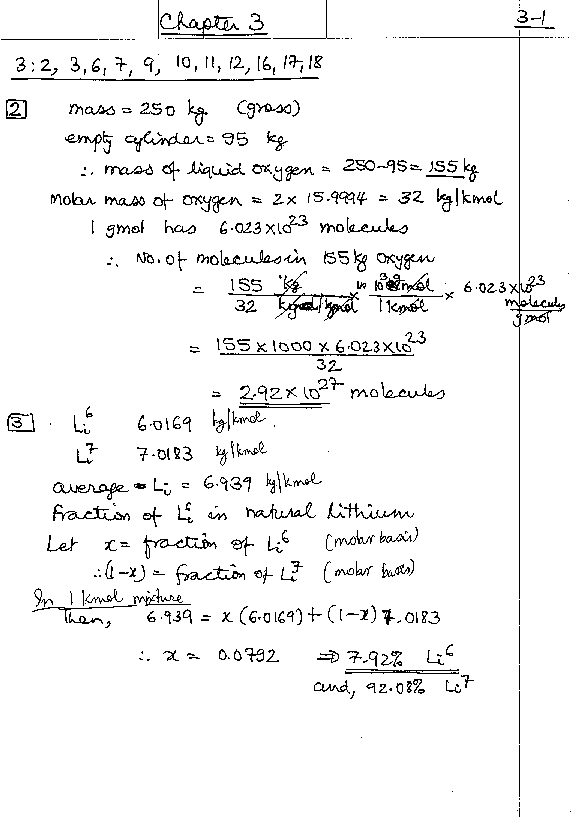 Chapter 3
3-1
3:2, 3, 6, 7, 9, 10, 11, 12, 16, 17, 18
2 mass = 250 kg (gross)
empty cylinder = 95 kg
∴ mass of liquid oxygen = 250-95 = 155 kg
Molar mass of oxygen = 2 x 15.9994 = 32 kg/kmol
1 gmol has 6.023x10^23 molecules
∴ No. of molecules in 155 kg oxygen
= 155 kg / 32 kg/kmol x 10^3 gmol / 1 kmol x 6.023x10^23 molecules / gmol
= 155 x 1000 x 6.023x10^23 / 32
= 2.92 x 10^27 molecules
3 Li^6 6.0169 kg/kmol
Li^7 7.0183 kg/kmol
average = Li = 6.939 kg/kmol
Fraction of Li^6 in natural lithium
Let x = fraction of Li^6 (molar basis)
∴ (1-x) = fraction of Li^7 (molar basis)
In 1 kmol mixture
Then, 6.939 = x(6.0169) + (1-x) 7.0183
∴ x = 0.0792 ⇒ 7.92% Li^6
and, 92.08% Li^7